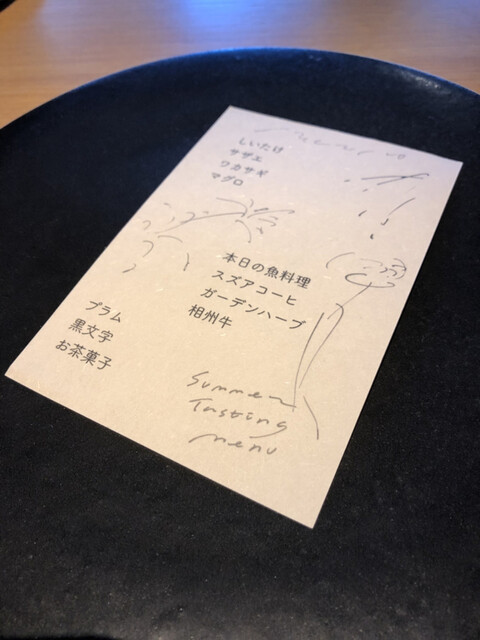 しいたけ
サザエ
ワカサギ
マグロ
本日の魚料理
スズアコーヒ
ガーデンハーブ
相州牛
プラム
黒文字
お茶菓子
Summer
Tasting
menu